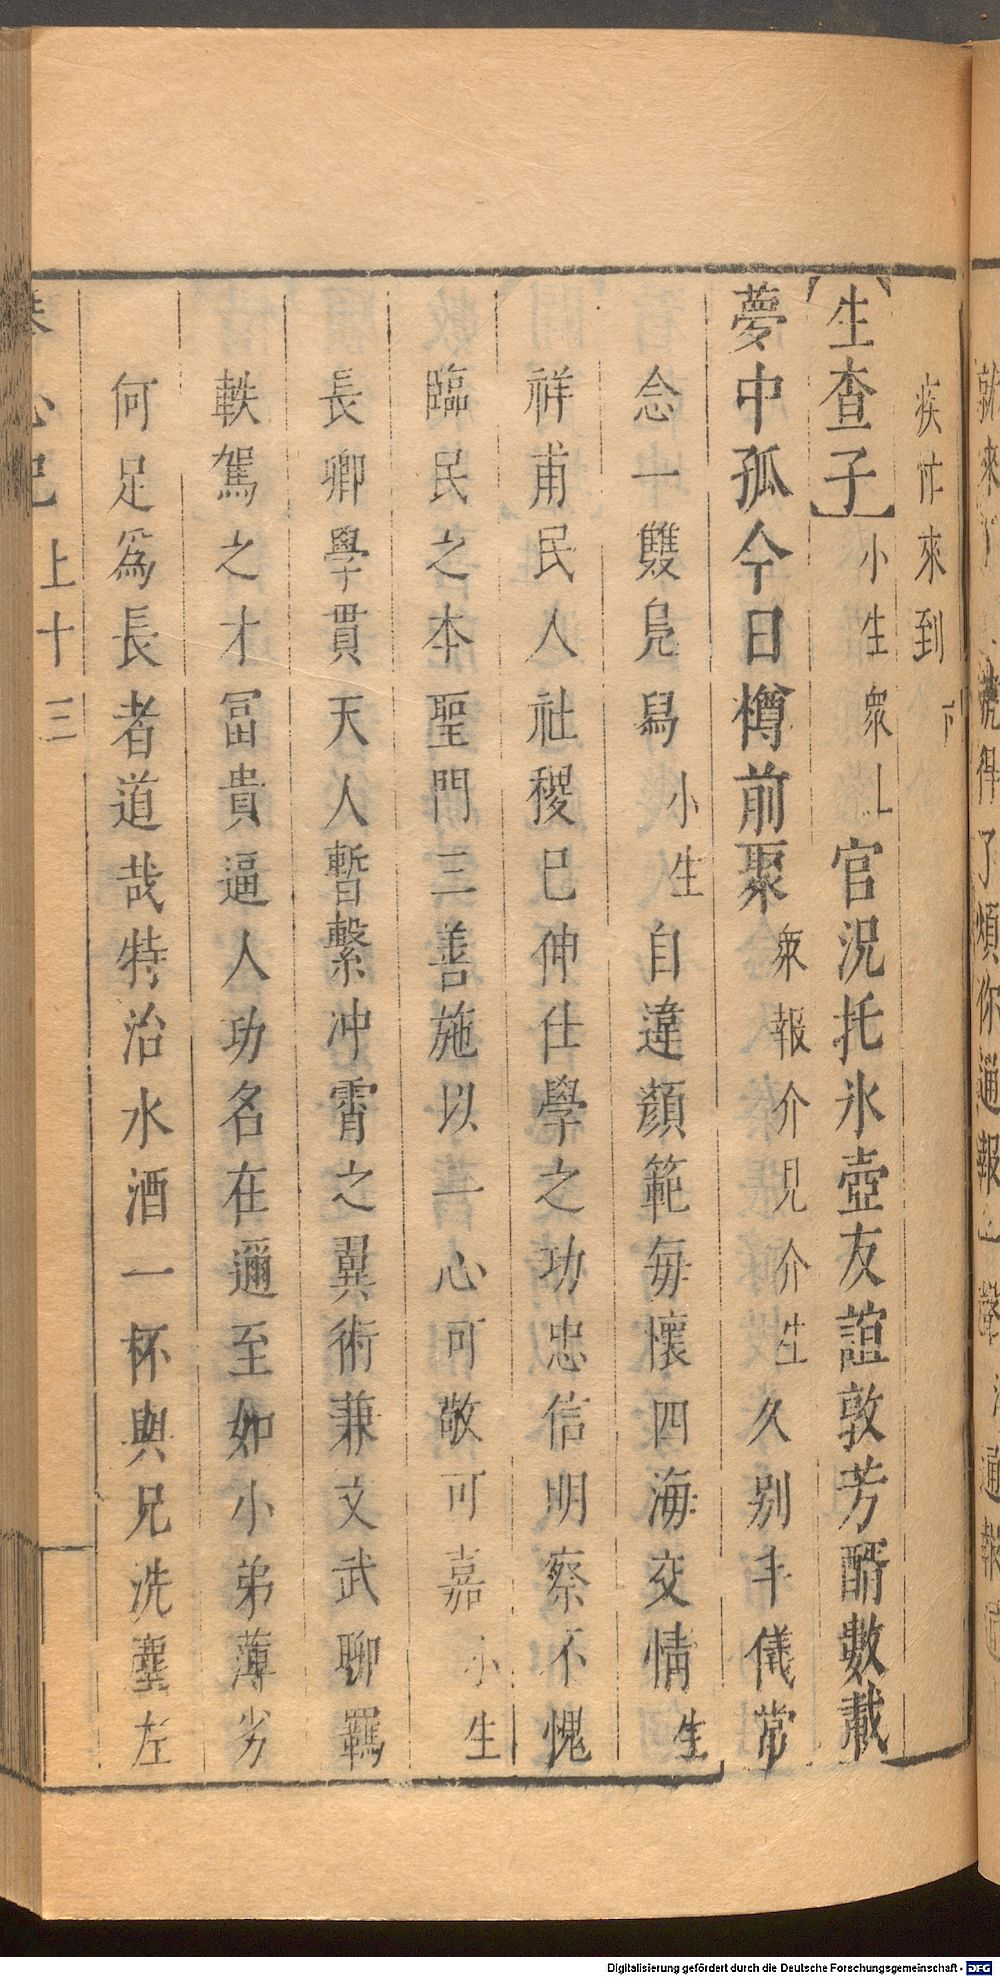 疾忙來到 下
【生查子】小生衆上官況托氷壺友誼敦芳醑數載
夢中孤今日樽前聚衆報介見介生久别丰儀常
念一雙鳧舄小生自違顏範每懷四海交情生
祥甫民人社稷已伸仕學之功忠信明察不愧
臨民之本聖門三善施以一心可敬可嘉小生
長卿學貫天人暫繫冲霄之翼術兼文武聊羈
軼駕之才冨貴逼人功名在邇至如小弟薄劣
何足爲長者道哉特治水酒一杯與兄洗塵左
上十三
就來 得了煩你通報一聲 通報
Digitalisierung gefördert durch die Deutsche Forschungsgemeinschaft - DFG